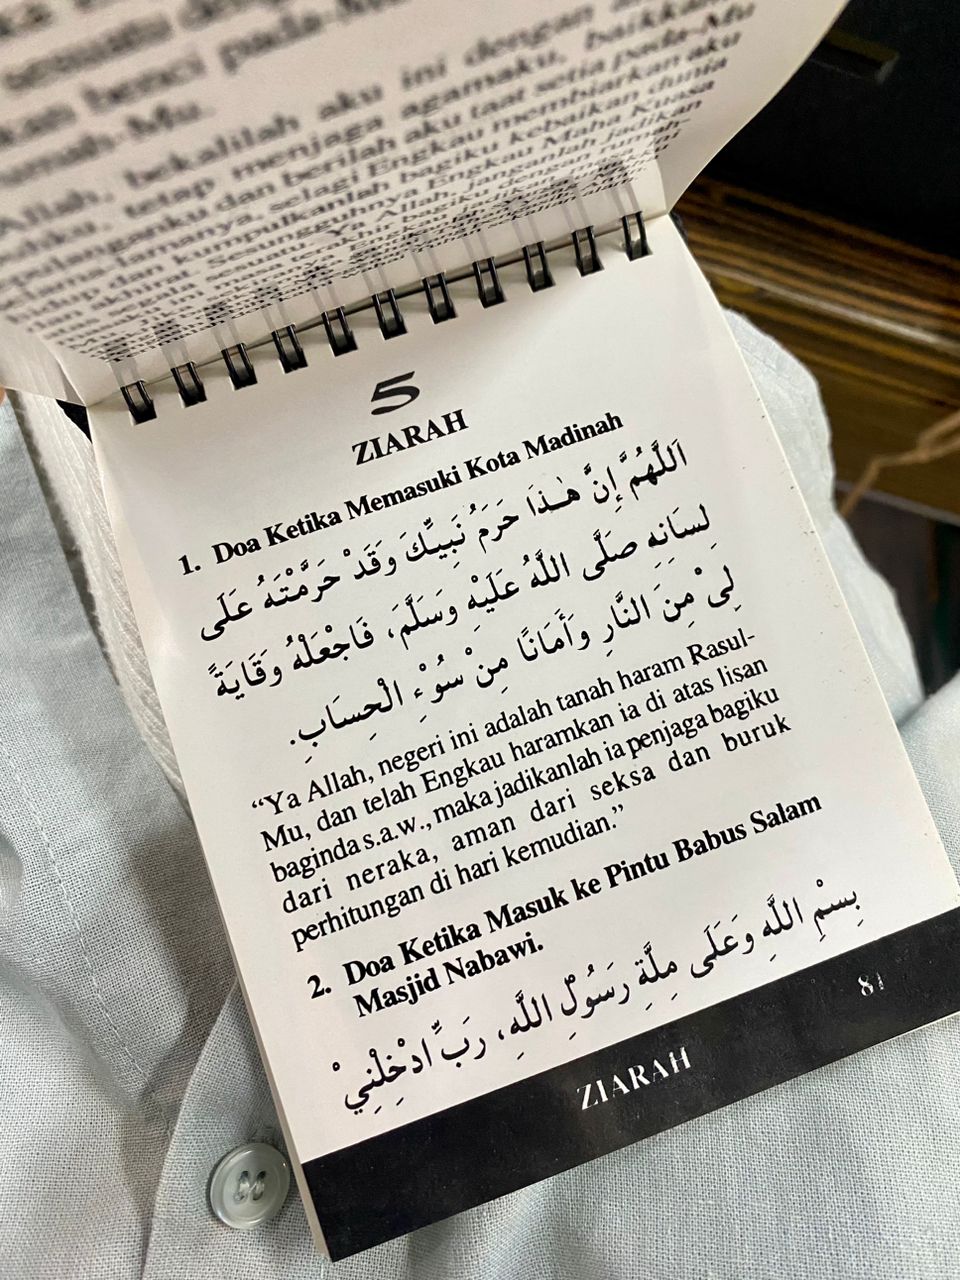 kan benci pada-Mu
sunnah-Mu.
Allah, bekalilah aku ini dengan
tetap menjaga agamaku, baikkan
dan berilah aku taat setia pada-Mu
selama lamanya, selagi Engkau membiarkan aku
hidup dan kumpulkanlah bagiku kebaikan dunia
dan akhirat. Sesungguhnya Engkau Maha Kuasa
5
ZIARAH
1. Doa Ketika Memasuki Kota Madinah
اَللَّهُمَّ إِنَّ هٰذَا حَرَمُ نَبِيِّكَ وَقَدْ حَرَّمْتَهُ عَلَى
لِسَانِهِ صَلَّى اللَّهُ عَلَيْهِ وَسَلَّمَ، فَاجْعَلْهُ وَقَايَةً
لِىْ مِنَ النَّارِ وَأَمَانًا مِنْ سُوْءِ الْحِسَابِ.
“Ya Allah, negeri ini adalah tanah haram Rasul-
Mu, dan telah Engkau haramkan ia di atas lisan
baginda s.a.w., maka jadikanlah ia penjaga bagiku
dari neraka, aman dari seksa dan buruk
perhitungan di hari kemudian.”
2. Doa Ketika Masuk ke Pintu Babus Salam
Masjid Nabawi.
بِسْمِ اللَّهِ وَعَلَى مِلَّةِ رَسُوْلِ اللَّهِ، رَبِّ ادْخِلْنِيْ
ZIARAH 81